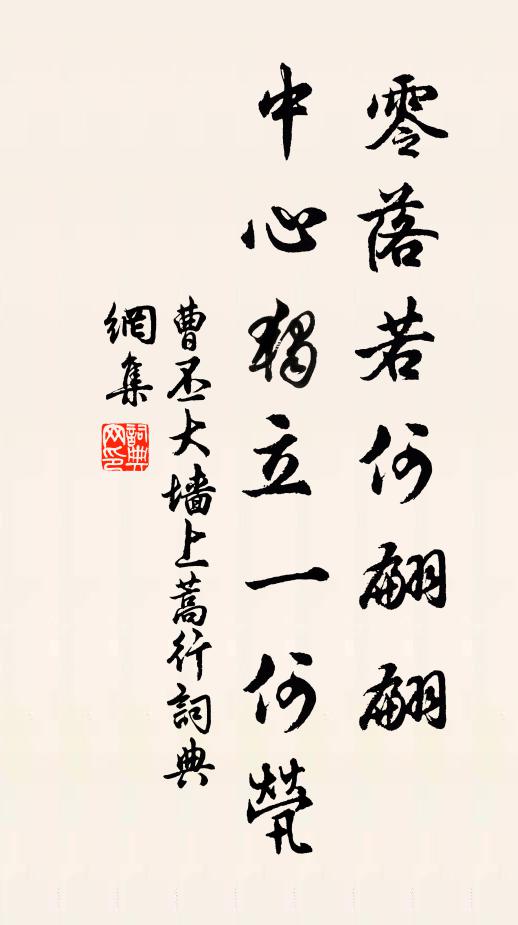 零落若何翩翩
中心獨立一何煢
曹丕大墙上蒿行詞典
網集
詞典
网印